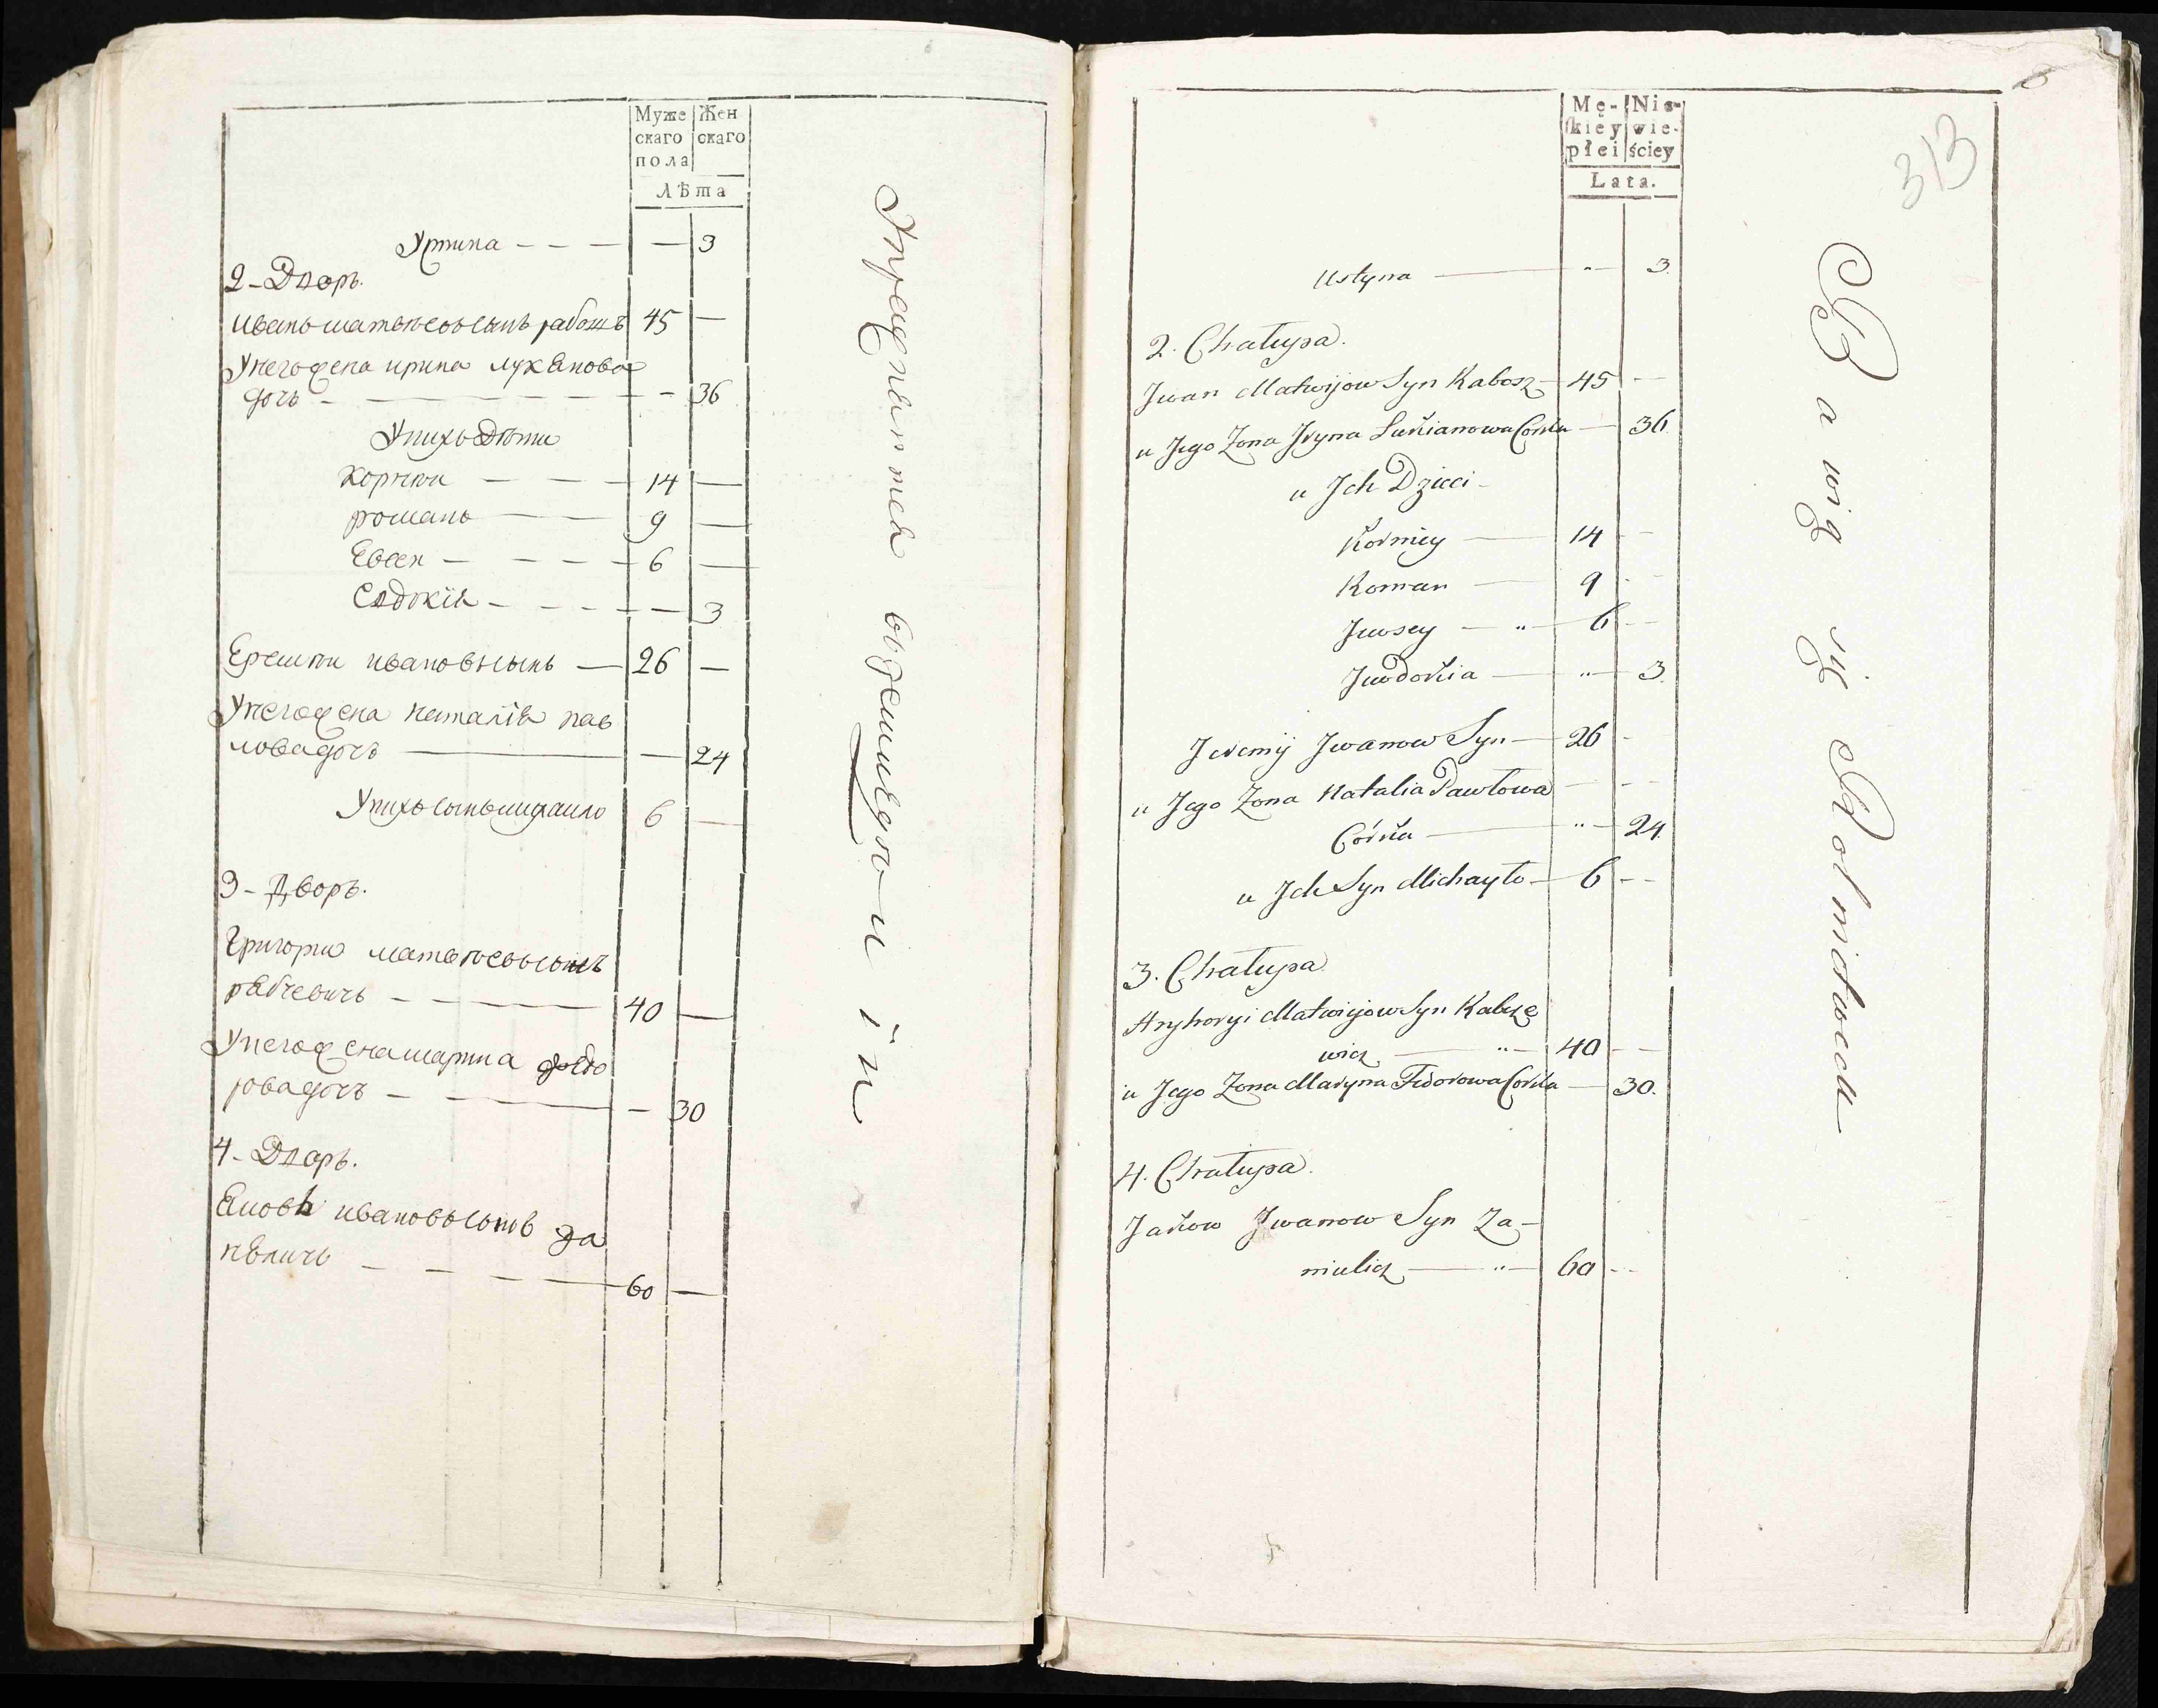 Муже
скаго
пола
Жен
скаго
Лѣта
Устина — — — — 3
2 - Дворъ.
Иванъ матвѣевъ сынъ рабошъ 45 —
У него жена ирина лукянова
дочь — — — — 36
У нихъ дѣти
Корнѣи — — — 14 —
романъ — — 9 —
Евсеи — — — 6 —
Евдокія — — — — 3
Еремѣи ивановъ сынъ — 26 —
У него жена наталія пав
лова дочь — — 24
У нихъ сынъ михаило 6 —
3 - Дворъ.
Григории матвѣевъ сынъ
рабчевичъ — — 40 —
У него жена марина федо
рова дочь — — — 30
4 - Дворъ.
Яковъ ивановъ сынъ да
нѣличъ — — — — 60 —
Упражняются въ земледелии
8
313
Mę-
skiey
płci
Nie-
wie-
ściey
Lata.
Ustyna — " — 3.
2. Chałupa.
Jwan Matwijow Syn Rabosz — 45 —
u Jego Zona Jryna Łukianowa Corka — 36.
u Jch Dzieci
Korniey — 14 —
Roman — 9 —
Jewsey — " — 6 —
Jewdokia — " — 3.
Jeremij Jwanow Syn — 26 -
u Jego Zona Natalia Pawłowa — —
Córka — " — 24.
u Jch Syn Michayło — 6 —
3. Chałupa.
Hryhoryi Matwijow Syn Rabcze
wicz — " — 40 —
u Jego Zona Maryna Fedorowa Corka — 30.
4. Chałupa.
Jakow Jwanow Syn Za-
nielicz — " — 60 —
Bawią się Rolnictwem